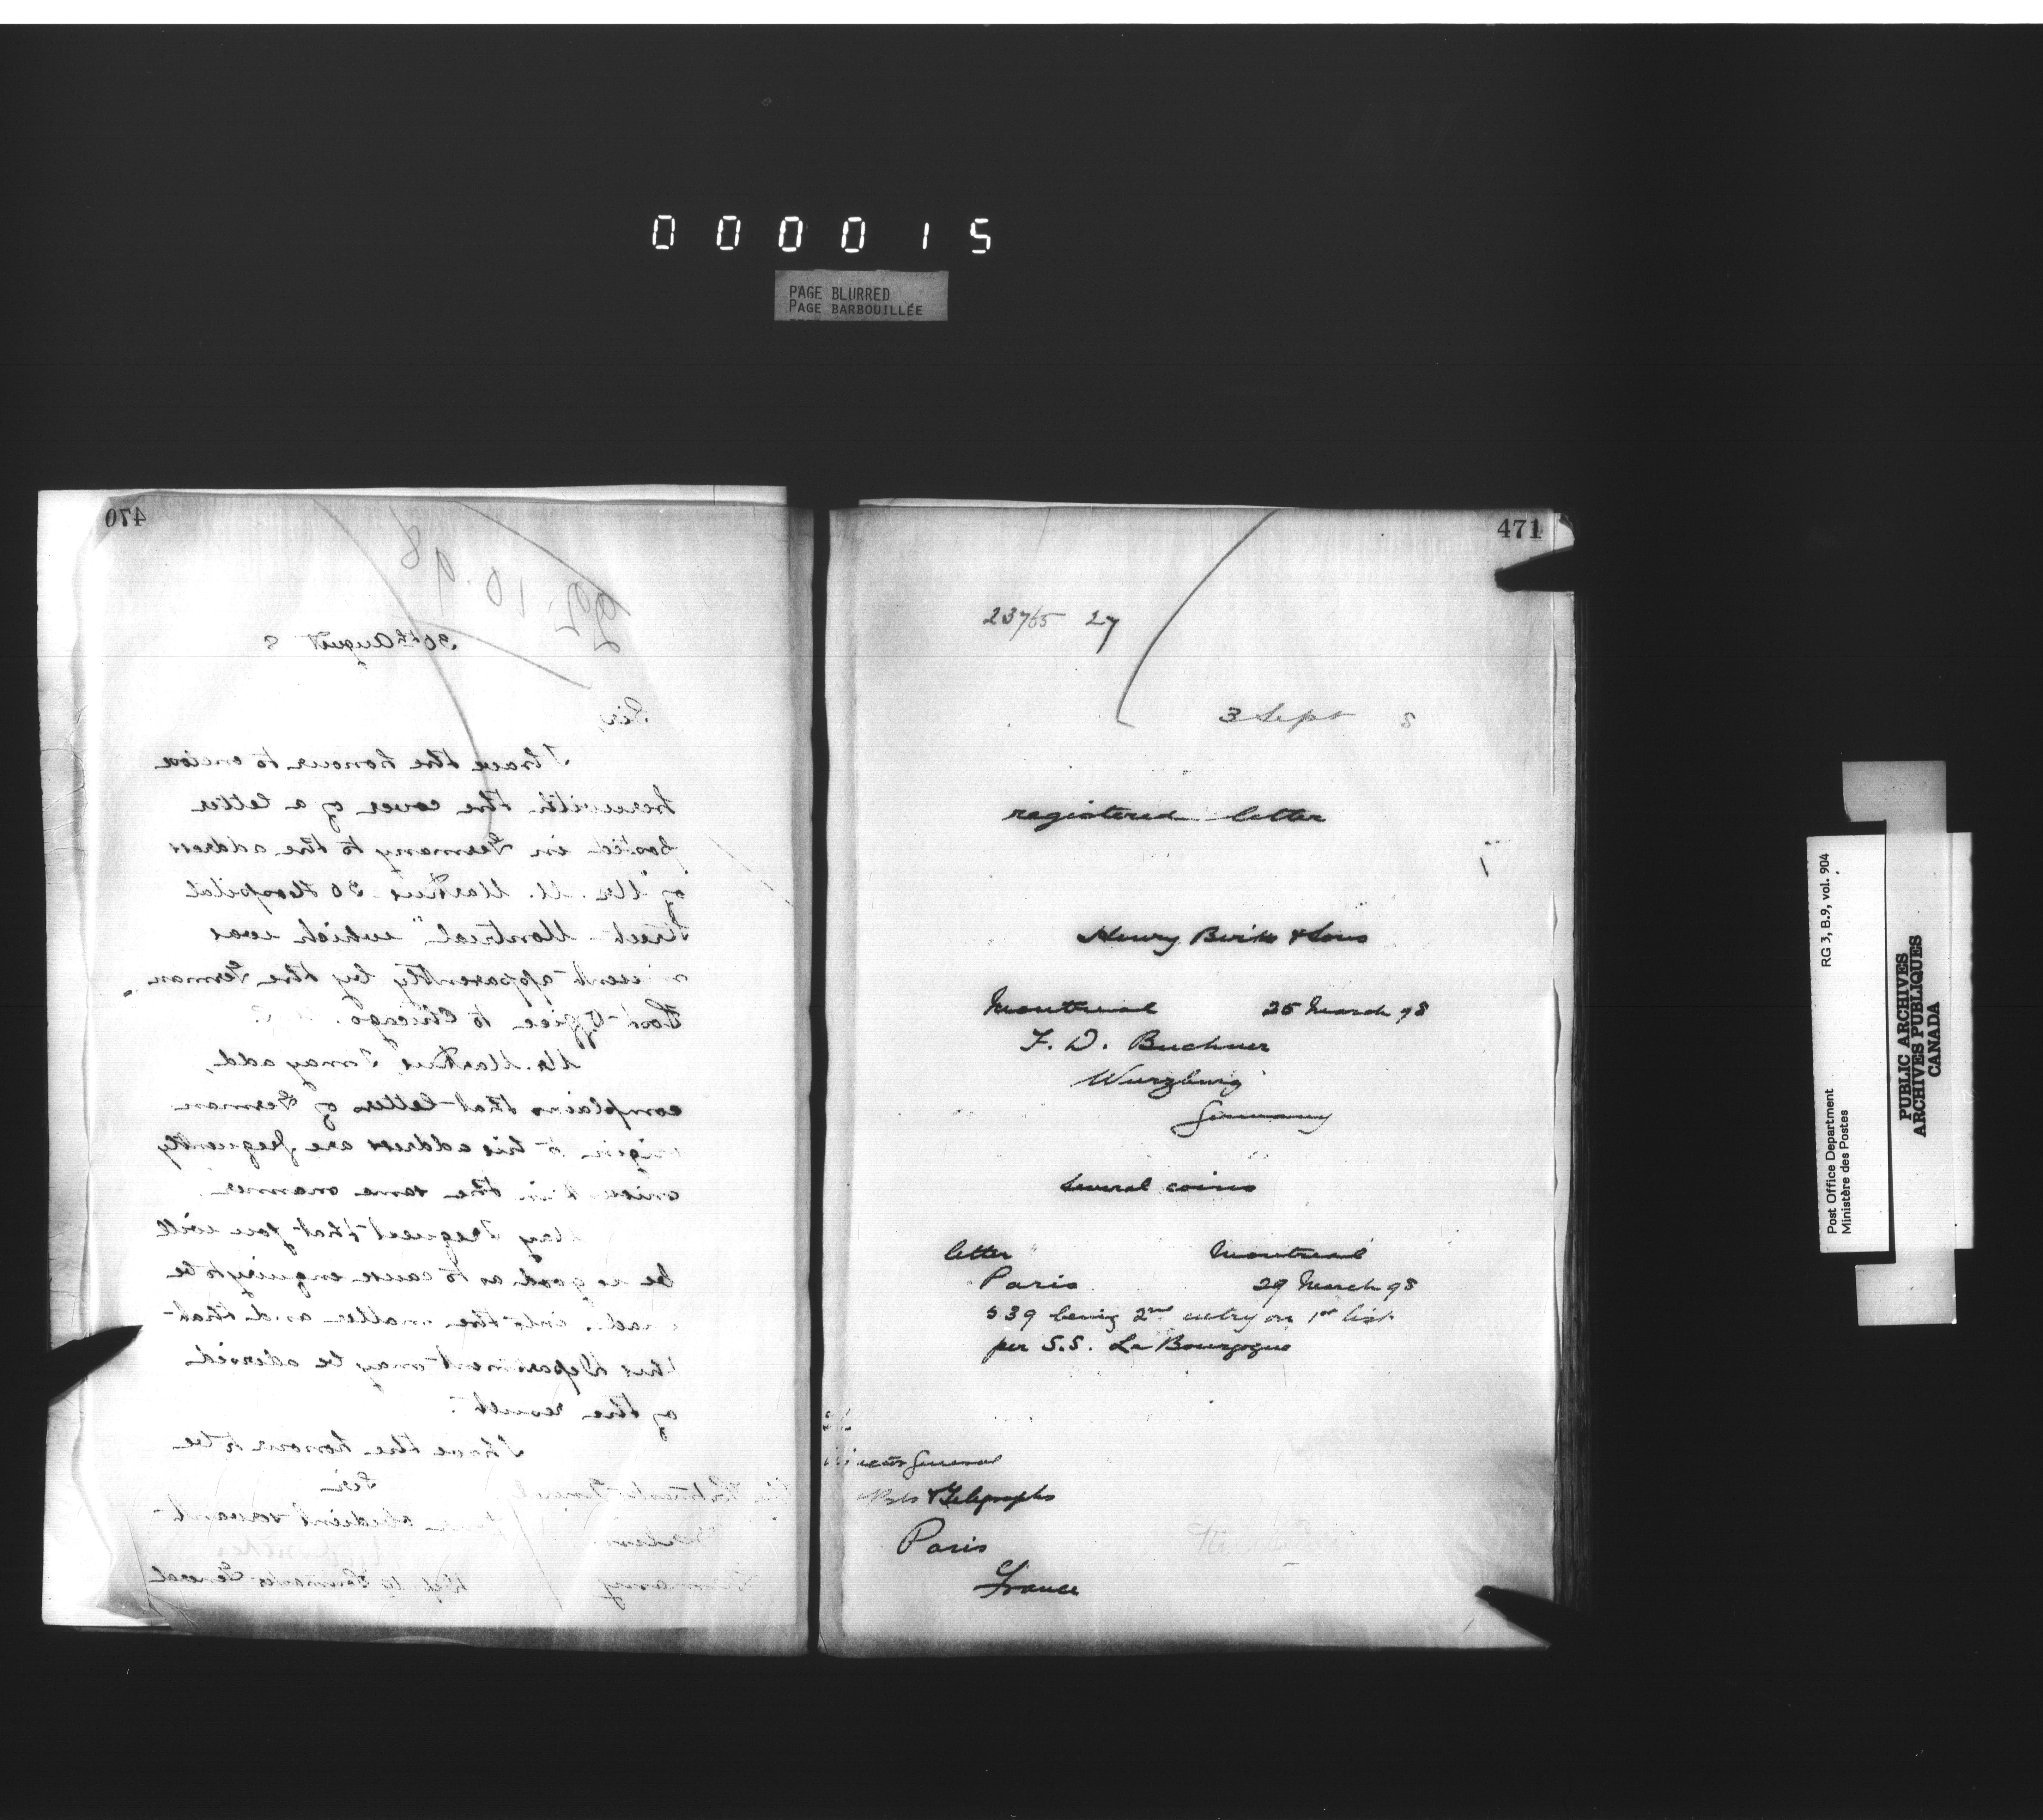 0 0 0 0 1 5
PAGE BLURRED
PAGE BARBOUILLÉE
470
22.10.98
30th August 8
Sir,
I have the honour to enclose
herewith the cover of a letter
posted in Germany to the address
of "Mr. M. Markus 30 Hospital
Street Montreal" which was
missent apparently by the German
Post-Office to Chicago.
Mr. Markus, I may add,
complains that letters of German
origin to his address are frequently
missent in the same manner.
May I request that you will
be so good as to cause enquiry to be
made into the matter and that
this Department may be advised
of the result.
I have the honour to be
Sir
Your obedient servant
Berlin
Germany
Deputy Postmaster General
471
23765 27
3 Sept 8
registered letter
Henry Birks & Sons
Montreal 25 March 98
F. D. Buchner
Wurzburg
Germany
Several coins
letter Montreal
Paris 29 March 98
539 being 2nd entry on 1st list
per S.S. La Bourgogne
Director General
Posts & Telegraphs
Paris
France
RG 3, B.9, vol. 904
Post Office Department
Ministère des Postes
PUBLIC ARCHIVES
ARCHIVES PUBLIQUES
CANADA